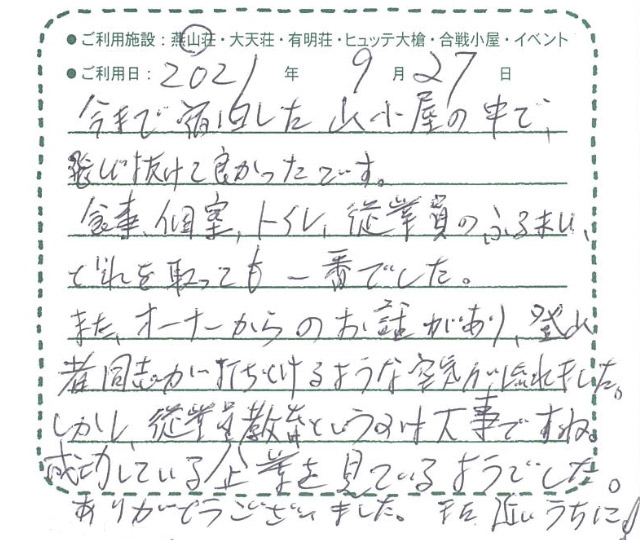 ●ご利用施設：燕山荘・大天荘・有明荘・ヒュッテ大槍・合戦小屋・イベント
●ご利用日：2021年 9月27日
今まで宿泊した山小屋の中で、
飛び抜けて良かったです。
食事、個室、トイレ、従業員のふるまい、
どれを取っても一番でした。
また、オーナーからのお話があり、登山
者同志が打ちとけるような空気が流れました。
しかし、従業員教育というのは大事ですね。
成功している企業を見ているようでした。
ありがとうございました。また近いうちに！